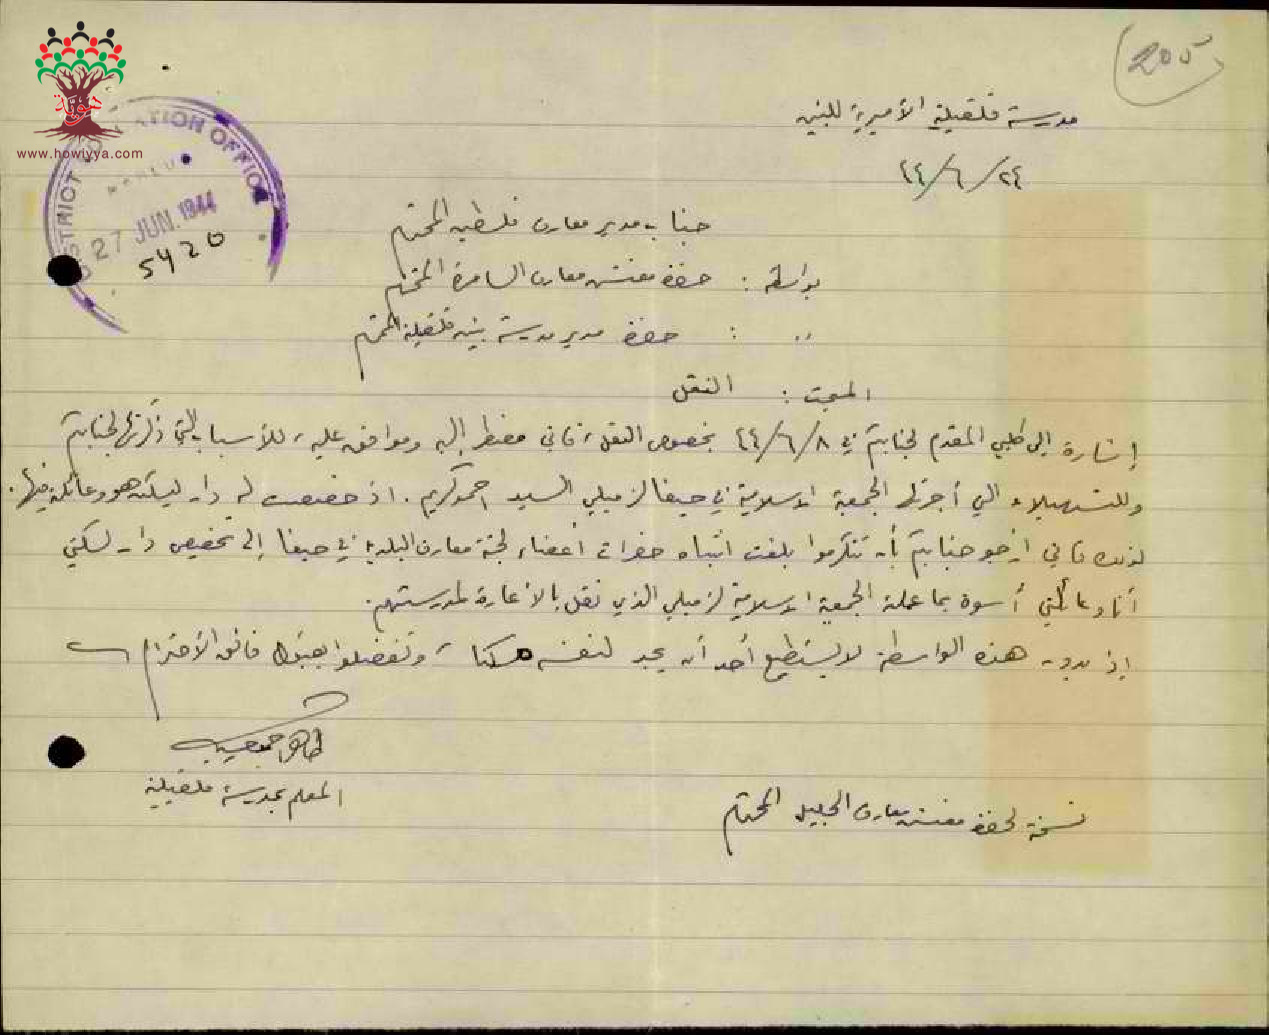 205
مدرسة قلقيلية الأميرية للبنين
٢٤/٦/٤٤
هوية
www.howiyya.com
DISTRICT EDUCATION OFFICE
27 JUN. 1944
5420
جناب مدير معارف فلسطين المحترم
بواسطة : حضرة مفتش معارف السامرة المحترم
,, : حضرة مدير مدرسة بنين قلقيلية المحترم
المبحث : النقل
إشارة إلى طلبي المقدم لجنابكم في ٤٤/٦/٨ بخصوص النقل، فاني مضطر إليه وموافق عليه، للأسباب التي ذكرتها لجنابكم
وللتسهيلات التي أجرتها الجمعية الاسلامية في حيفا لزميلي السيد احمد كريم. اذ خصصت له دار ليسكن هو وعائلته فيها.
لذلك فاني ارجو جنابكم بأن تتكرموا بلفت انتباه حضرات أعضاء لجنة معارف البلدية في حيفا إلى تخصيص دار لسكني
أنا وعائلتي أسوة بما عملته الجمعية الاسلامية لزميلي الذي نقل بالاعارة لمدرستهم.
إذ بدون هذه الواسطة لا يستطيع أحد أن يجد لنفسه مسكنا، وتفضلوا بقبول فائق الأحترام
طاهر
المعلم بمدرسة قلقيلية
نسخة لحضرة مفتش معارف الجليل المحترم